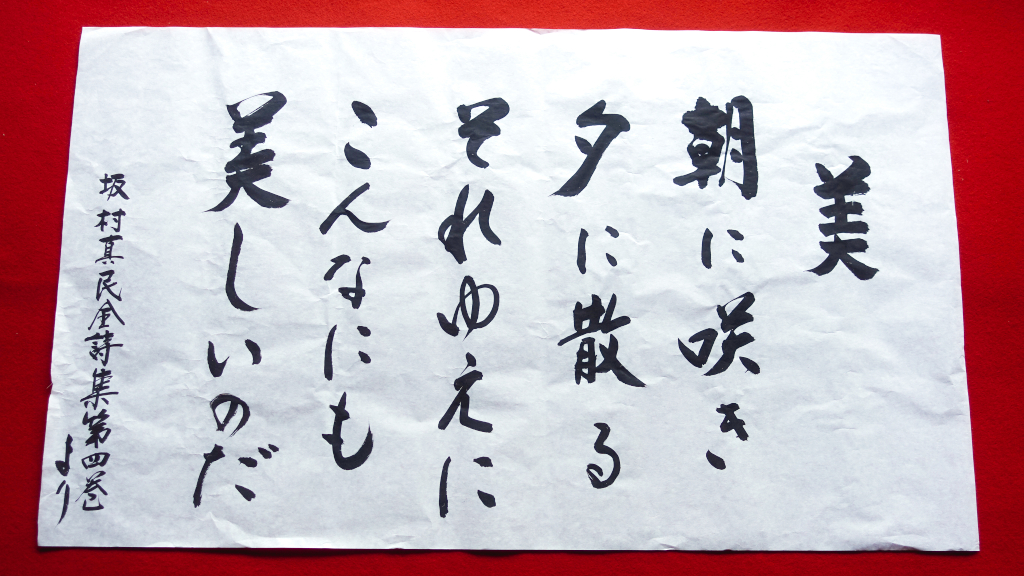 美
朝に咲き
夕に散る
それゆえに
こんなにも
美しいのだ
坂村真民全詩集第四巻
より